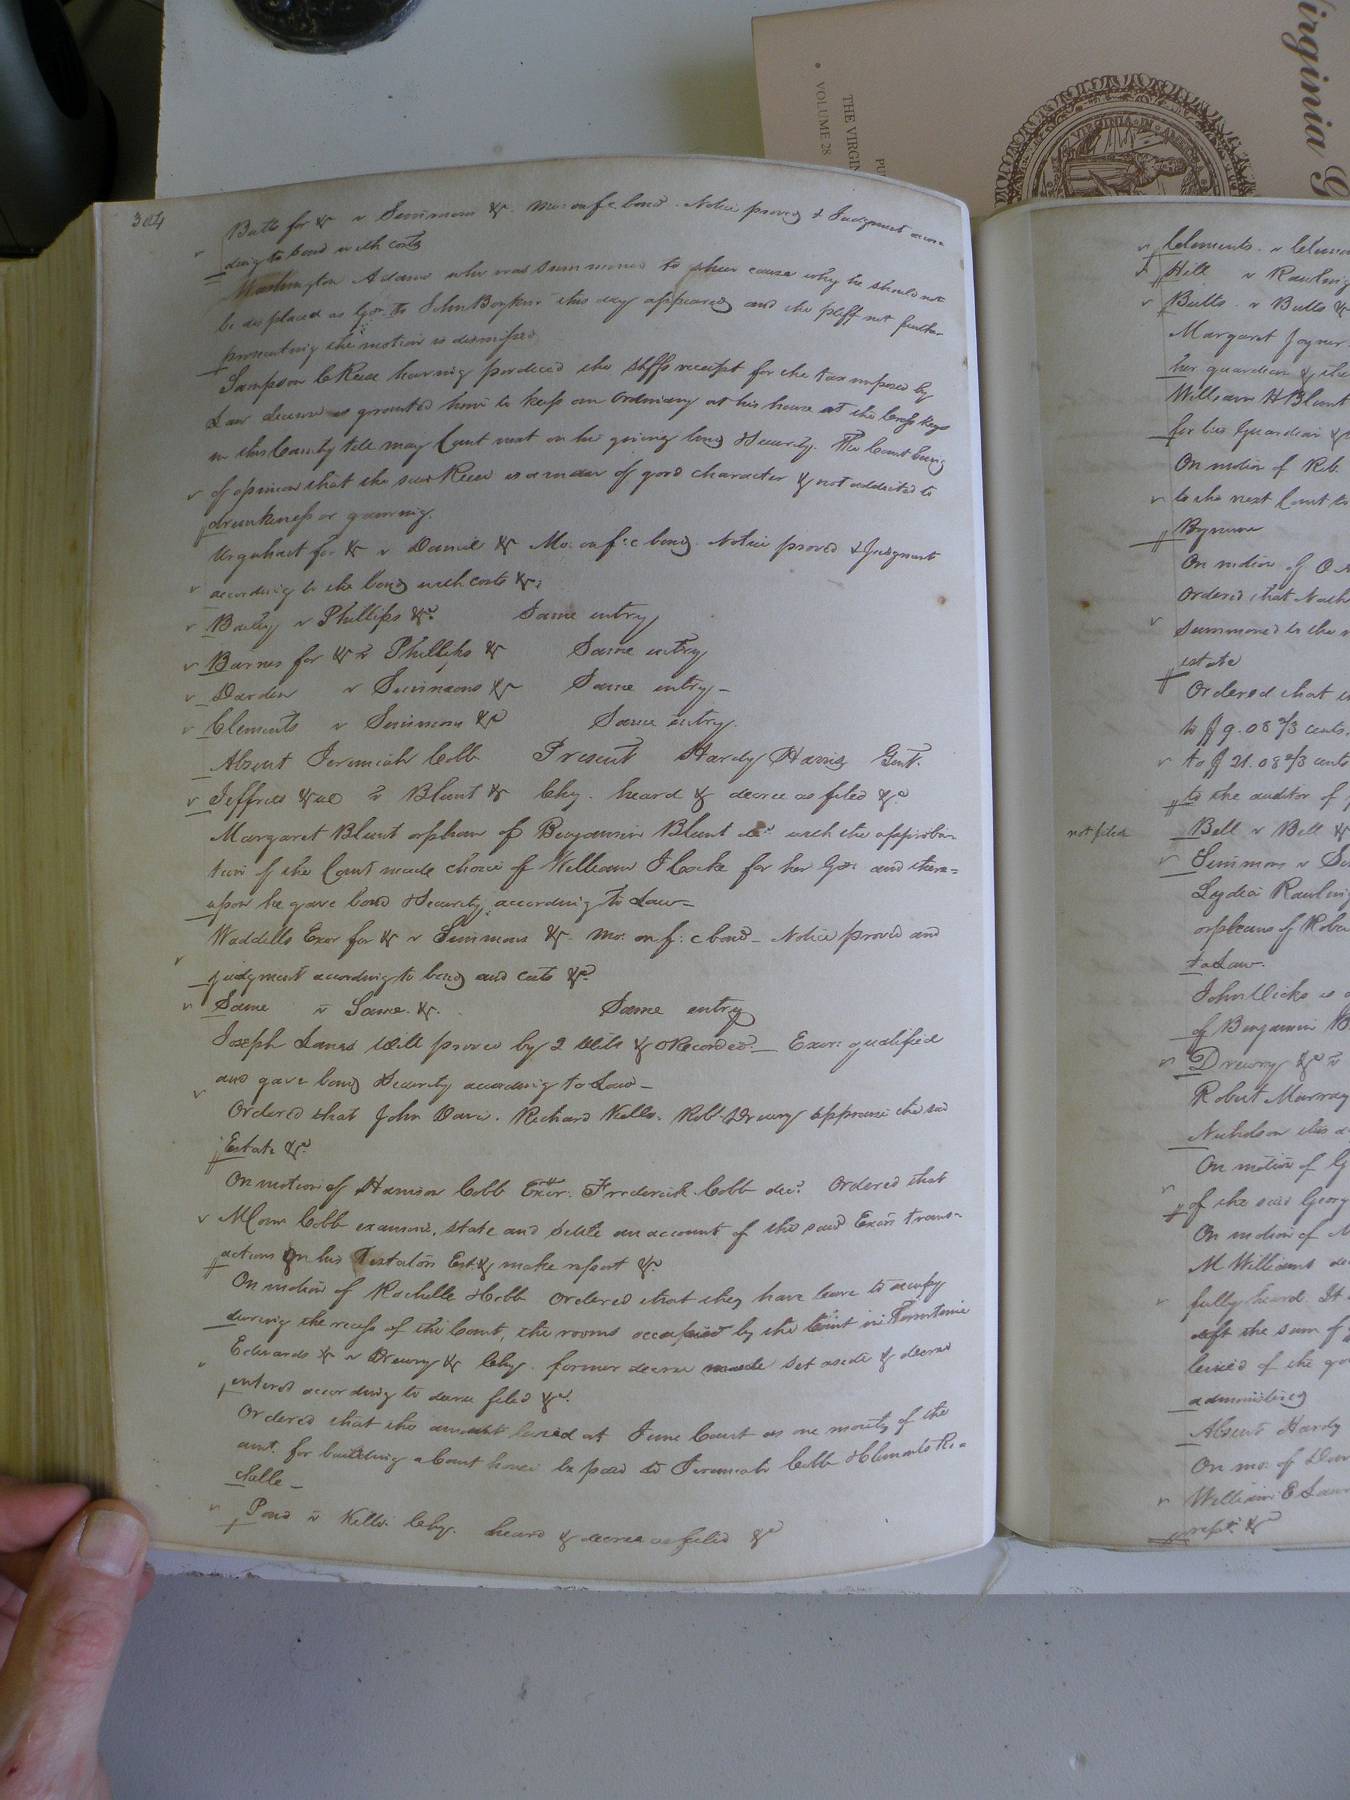 304
Batts for &c v Simmons &c. Mo: on f:c bond. Notice proved & Judgment accor-
ding to bond with costs
Washington Adams who was summoned to shew cause why he should not
be displaced as Gdn. to John Boykin this day appeared and the pltff not further
prosecuting the motion is dismissed
Sampson C Reese having produced the shffs receipt for the tax imposed by
Law license is granted him to keep an Ordinary at his house at the Cross Keys
in this County till may Court next on his giving bond & Security. The Court being
of opinion that the said Reese is a man of good character & not addicted to
drunkenness or gaming.
Urquhart for &c v Daniel &c Mo: on f:c bond. Notice proved & Judgment
according to the bond with costs &c.
Bailey v Phillips &c. Same entry
Barnes for &c v Phillips &c Same entry
Darden v Simmons &c Same entry-
Clements v Simmons &c Same entry.
Absent Jeremiah Cobb Present Hardy Harris Gent.
Jeffries &al v Blunt &c Chy. heard & decree as filed &c
Margaret Blunt orphan of Benjamin Blunt decd. with the approba-
tion of the Court made choice of William J Cocke for her Gdn: and there=
upon he gave bond & Security according to Law-
Waddells Exor for &c v Simmons &c. Mo. on f:c bond- Notice proved and
judgment according to bond and costs &c.
Same v Same. &c. Same entry
Joseph Lanes Will proved by 2 Wits & ORecorded.- Exor: qualified
and gave bond & Security according to Law-
Ordered that John Davis. Richard Kello. Robt. Drewry appraise the said
Estate &c.
On motion of Harrison Cobb Exor: Frederick Cobb decd. Ordered that
examine, state and settle an account of the said Exors trans-
actions on his Testators Est. & make report &c.
On motion of Rochelle & Cobb Ordered that they have leave to occupy
during the recess of the Court, the rooms occupied by the Court in
Edwards &c v Drewry &c Chy. former decree made set aside & decree
entered according to decree filed &c.
Ordered that the amount levied at June Court as one moiety of the
amt. for building a Court house be paid to Jeremiah Cobb & Clements Ro=
chelle-
Pond v Kello. Chy. heard & decree as filed &c
THE VIRGIN
VOLUME 28
PU
Virginia G
VIRGINIA IN A
Clements. v Cleme
Hill v Rawling
Butts. v Butts &c
Margaret Joyner.
her guardian & the
William H Blunt
for his Guardian &
On motion of Rob.
to the next Court to
Bynum
On motion of O
Ordered that Nath
Summoned to the n
estate
Ordered that
to $ 9.08 2/3 cents.
to $ 21.08 2/3 cents
to the auditor of
not filed
Bell v Bell &c
Simmons v Si
Lydia Rawlin
orphans of Robe
to Law.
John Vicks is
of Benjamin B
Drewry &c v
Robert Murray
Nicholson this
On motion of G
of the said Georg
On motion of M
M Williams de
fully heard. It
deft the sum of
levied of the goo
administered
Absent Hardy
On mo: of
William E Law
rept. &c